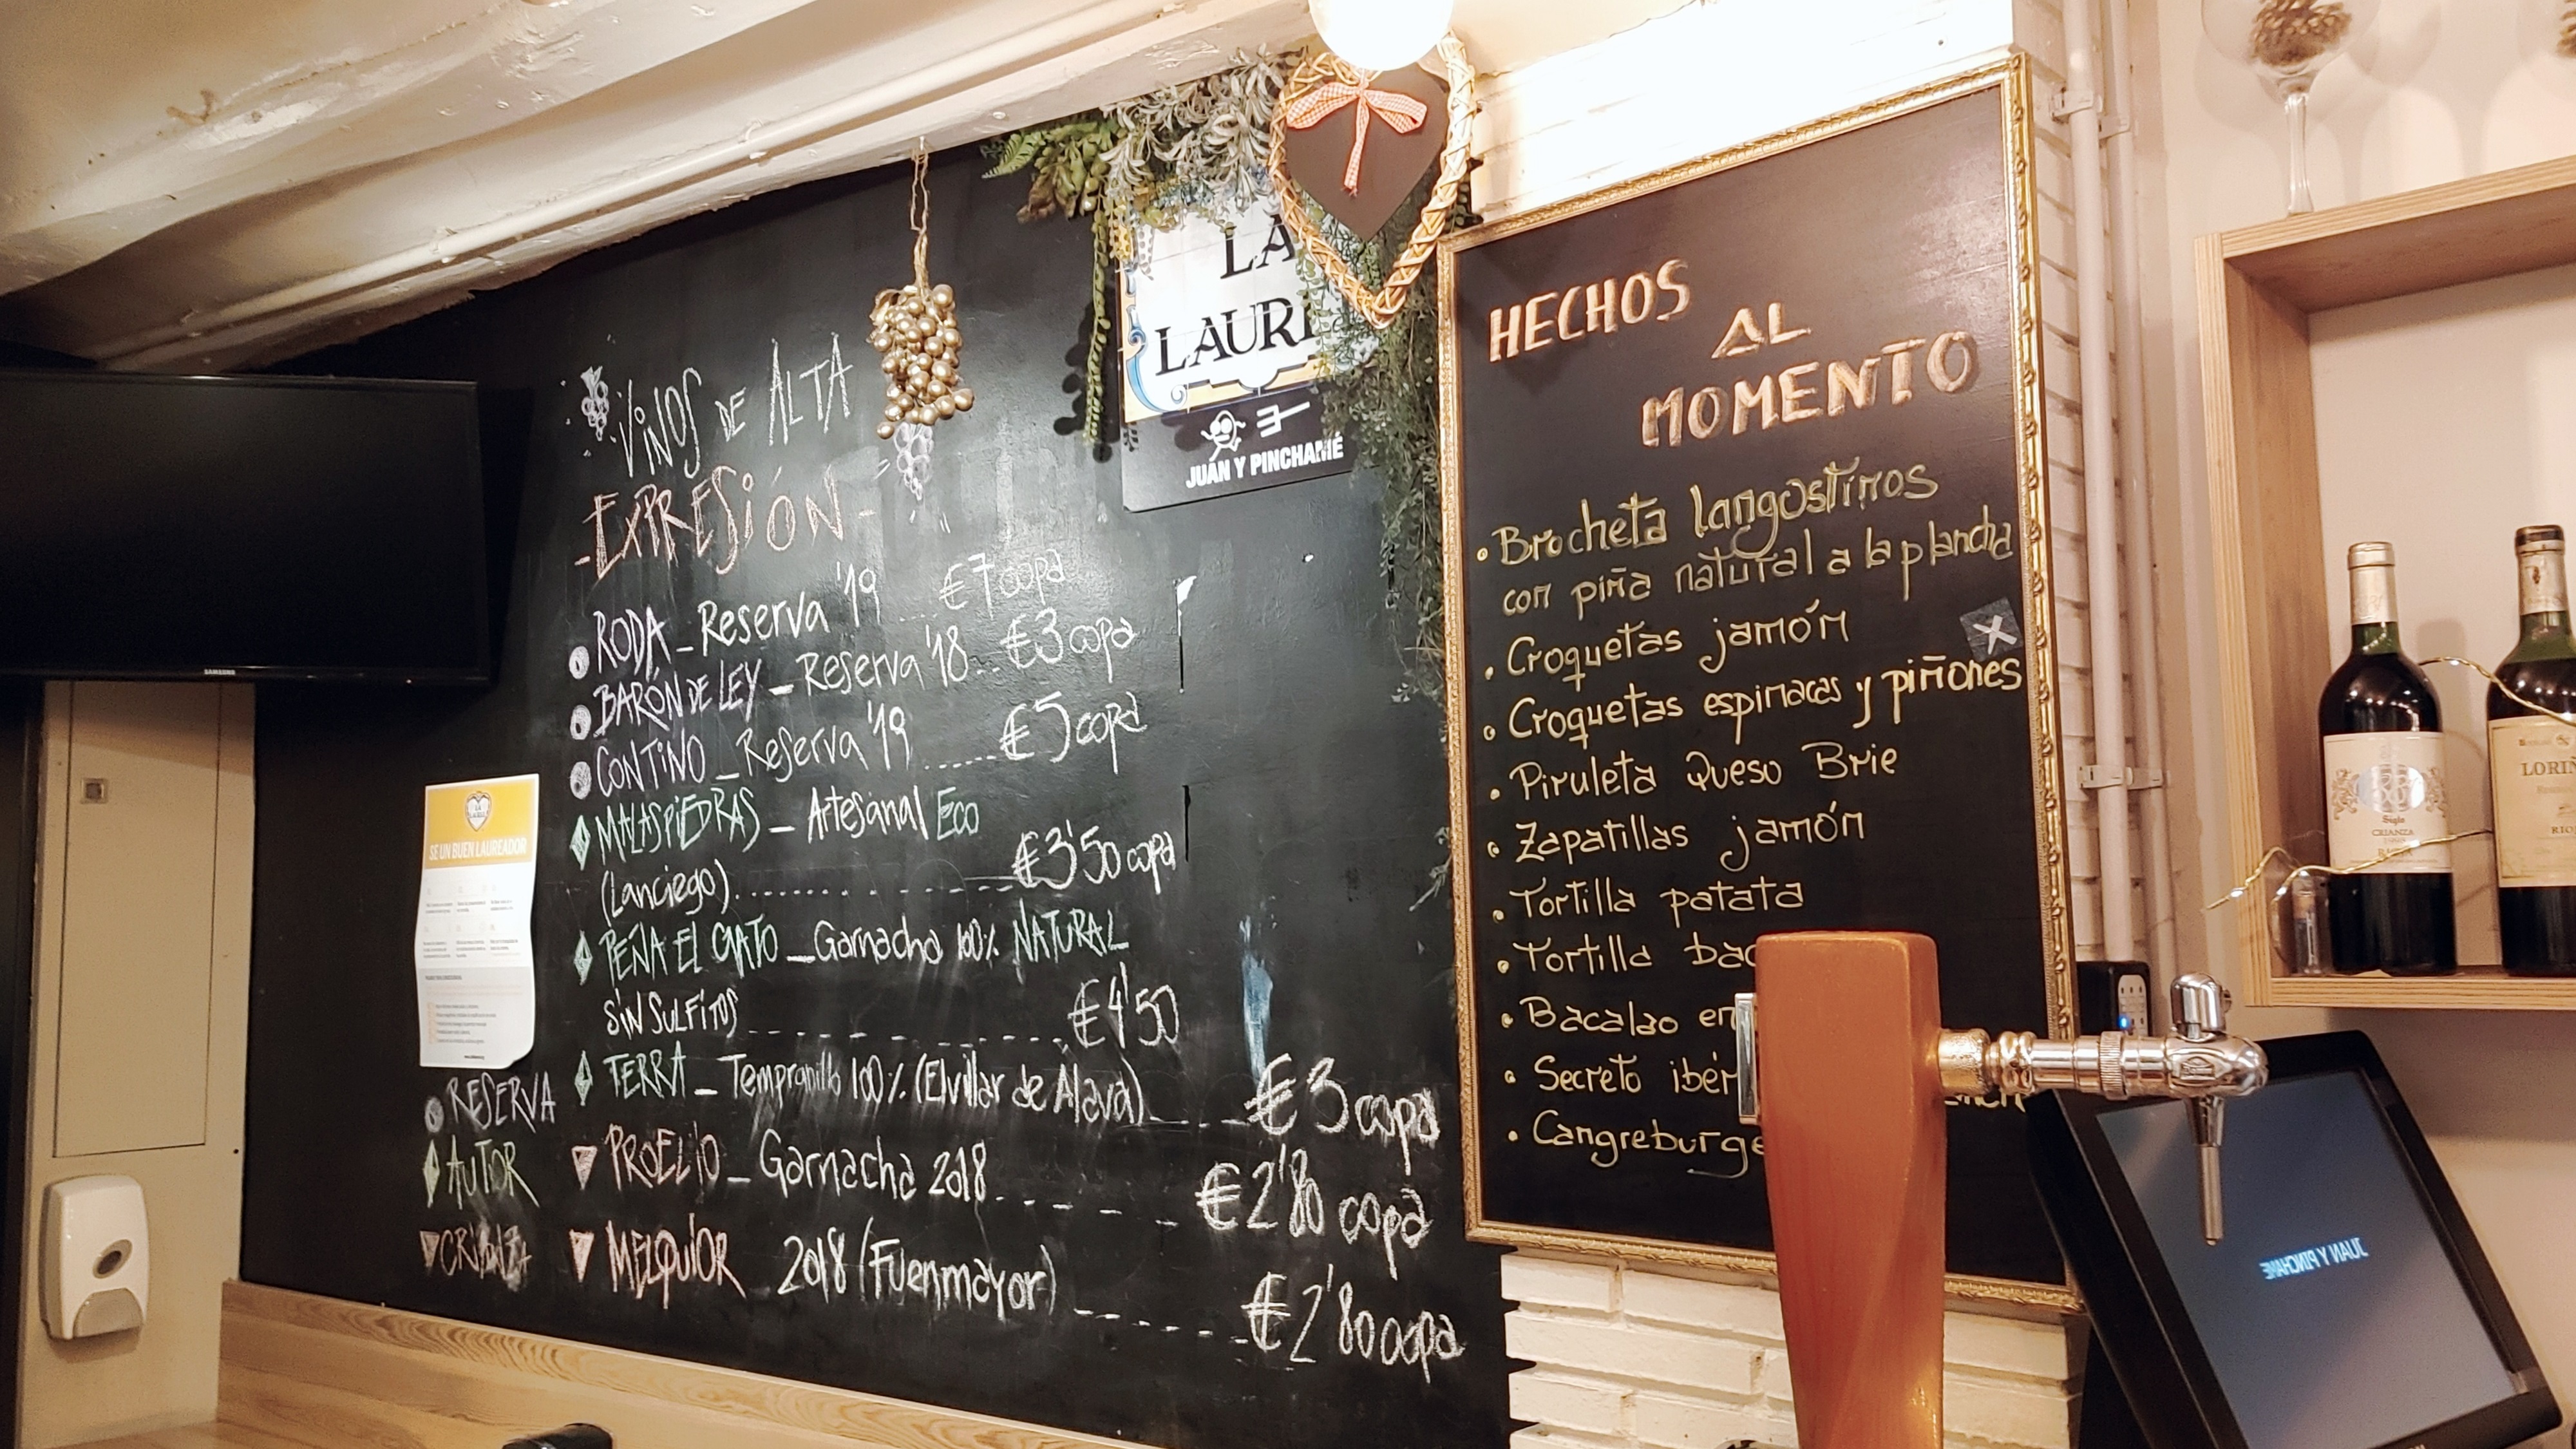 VINOS DE ALTA
-EXPRESIÓN-
RODA_Reserva '19 ..... €7 copa
BARÓN DE LEY_Reserva '18... €3 copa
CONTINO_Reserva '19 ...... €5 copa
MALASPIEDRAS_Artesanal Eco
(Lanciego)................ €3'50 copa
PEÑA EL GATO_Garnacha 100% NATURAL
SIN SULFITOS ............. €4'50
TERRA_Tempranillo 100% (Elvillar de Álava)..... €3 copa
PROELIO_Garnacha 2018..... €2'80 copa
MELQUIOR 2018 (Fuenmayor) ...... €2'80 copa
RESERVA
AUTOR
CRIANZA
SAMSUNG
SE UN BUEN LAUREADOR
LA
LAURE
JUAN Y PINCHAMÉ
HECHOS
AL
MOMENTO
• Brocheta langostinos
con piña natural a la plancha
• Croquetas jamón
• Croquetas espinacas y piñones
• Piruleta Queso Brie
• Zapatillas jamón
• Tortilla patata
• Tortilla bac
• Bacalao en
• Secreto ibér
• Cangreburge
Siglo
CRIANZA
LORIÑ
RIO
JUAN Y PINCHAME